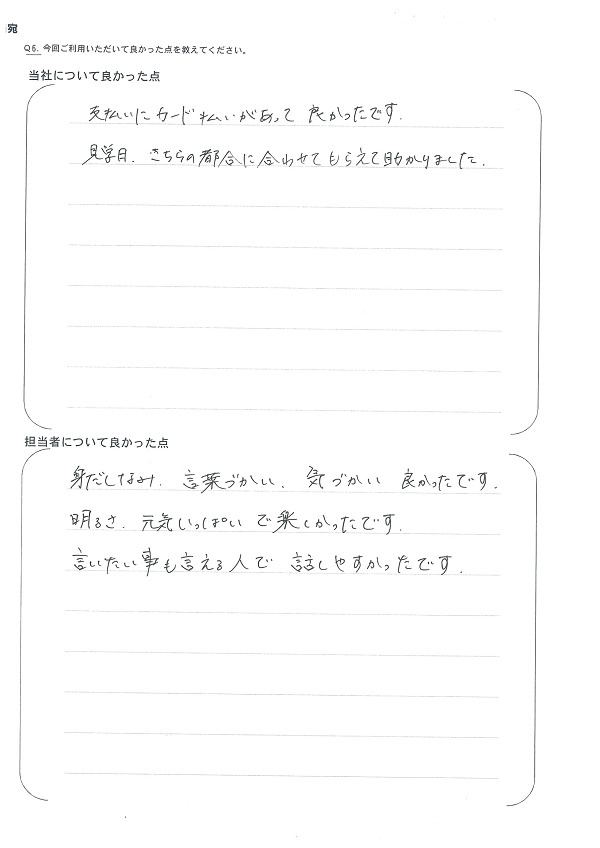 宛
Q6. 今回ご利用いただいて良かった点を教えてください。
当社について良かった点
支払いにカード払いがあって 良かったです.
見学日. こちらの都合に合わせてもらえて助かりました.
担当者について良かった点
身だしなみ. 言葉づかい. 気づかい 良かったです.
明るさ. 元気いっぱいで楽しかったです.
言いたい事も言える人で 話しやすかったです.